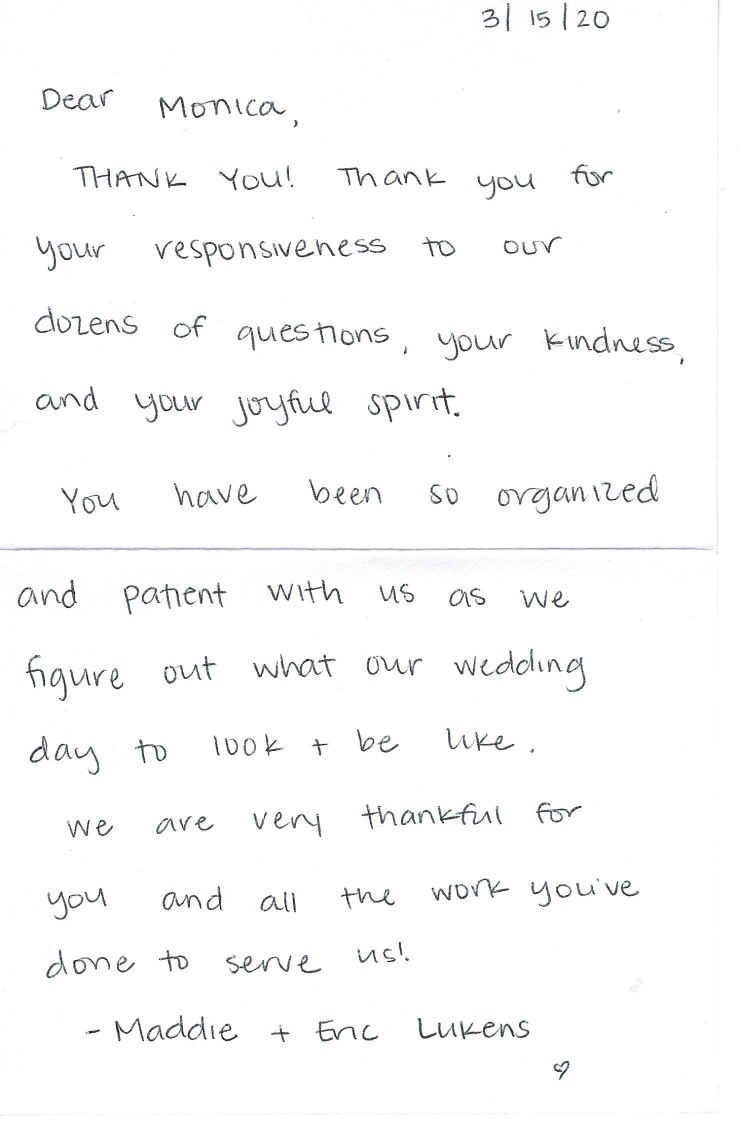 3/15/20
Dear Monica,
THANK YOU! Thank you for
your responsiveness to our
dozens of questions, your kindness,
and your joyful spirit.
You have been so organized
and patient with us as we
figure out what our wedding
day to look + be like.
We are very thankful for
you and all the work you've
done to serve us!
- Maddie + Eric Lukens
♡